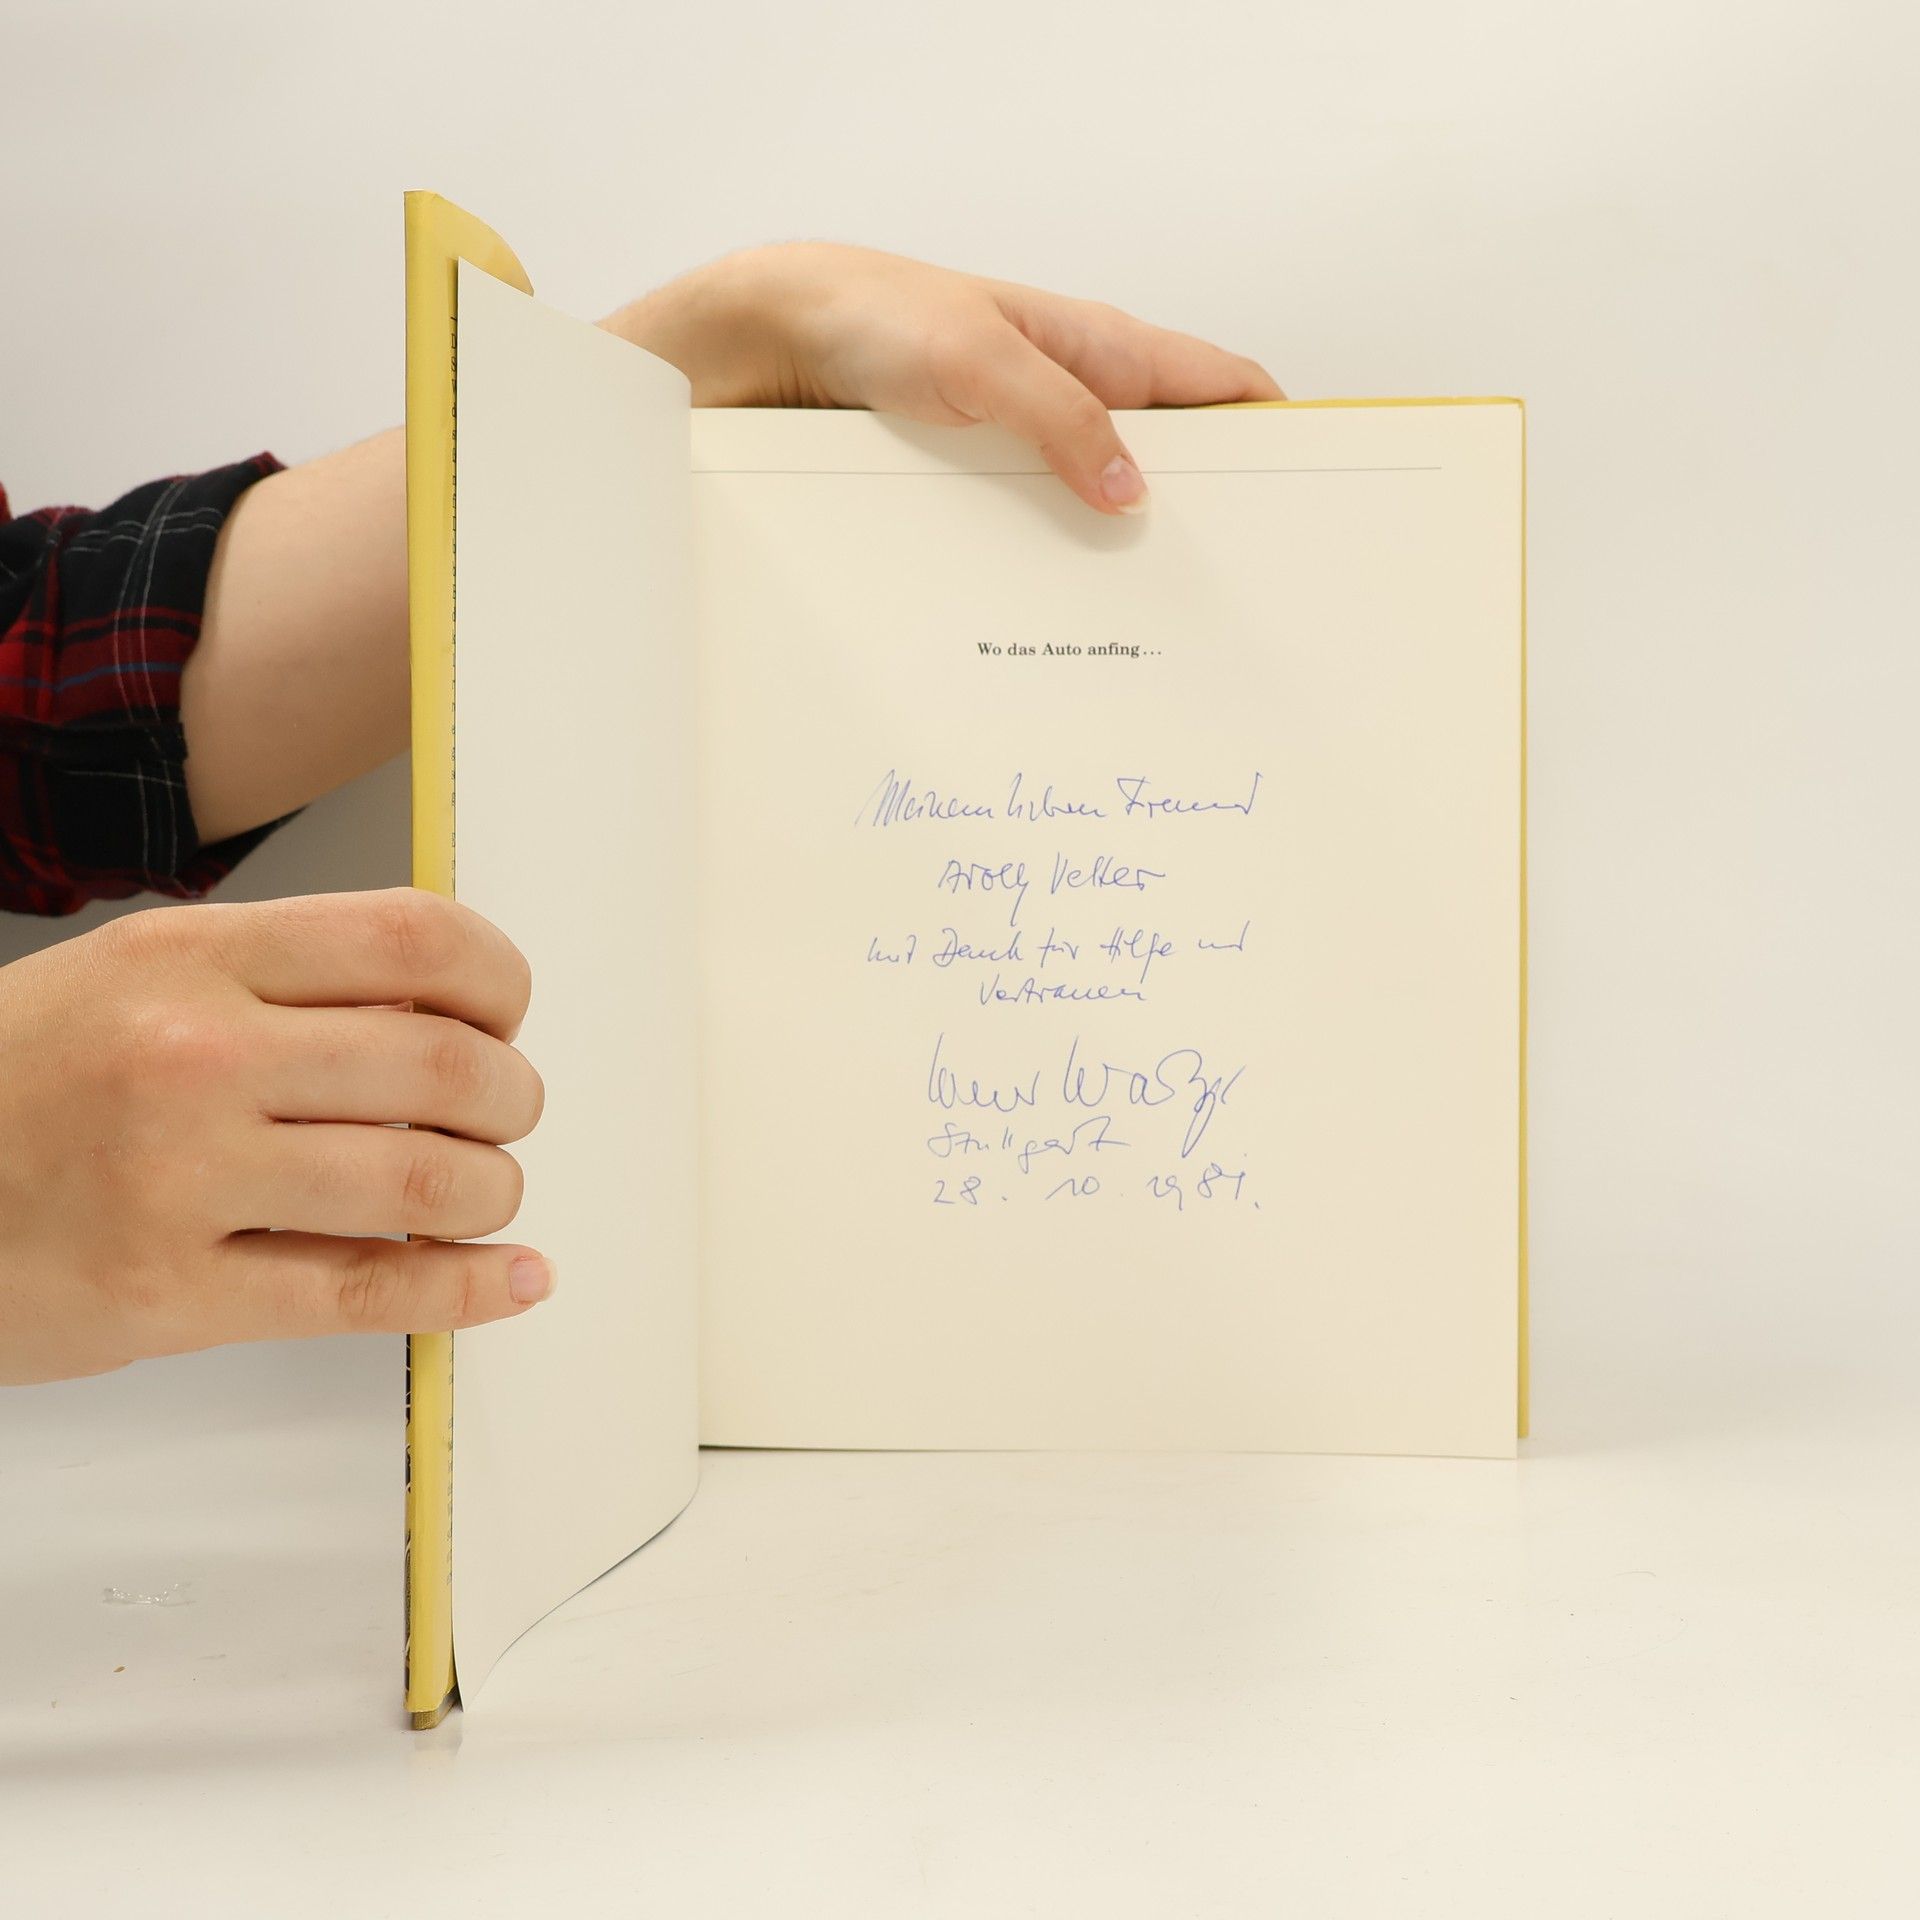 Wo das Auto anfing...
Meinem lieben Freund
Adolf Vetter
mit Dank für Hilfe und
Vertrauen
Werner Walz
Stuttgart
28. 10. 1981.